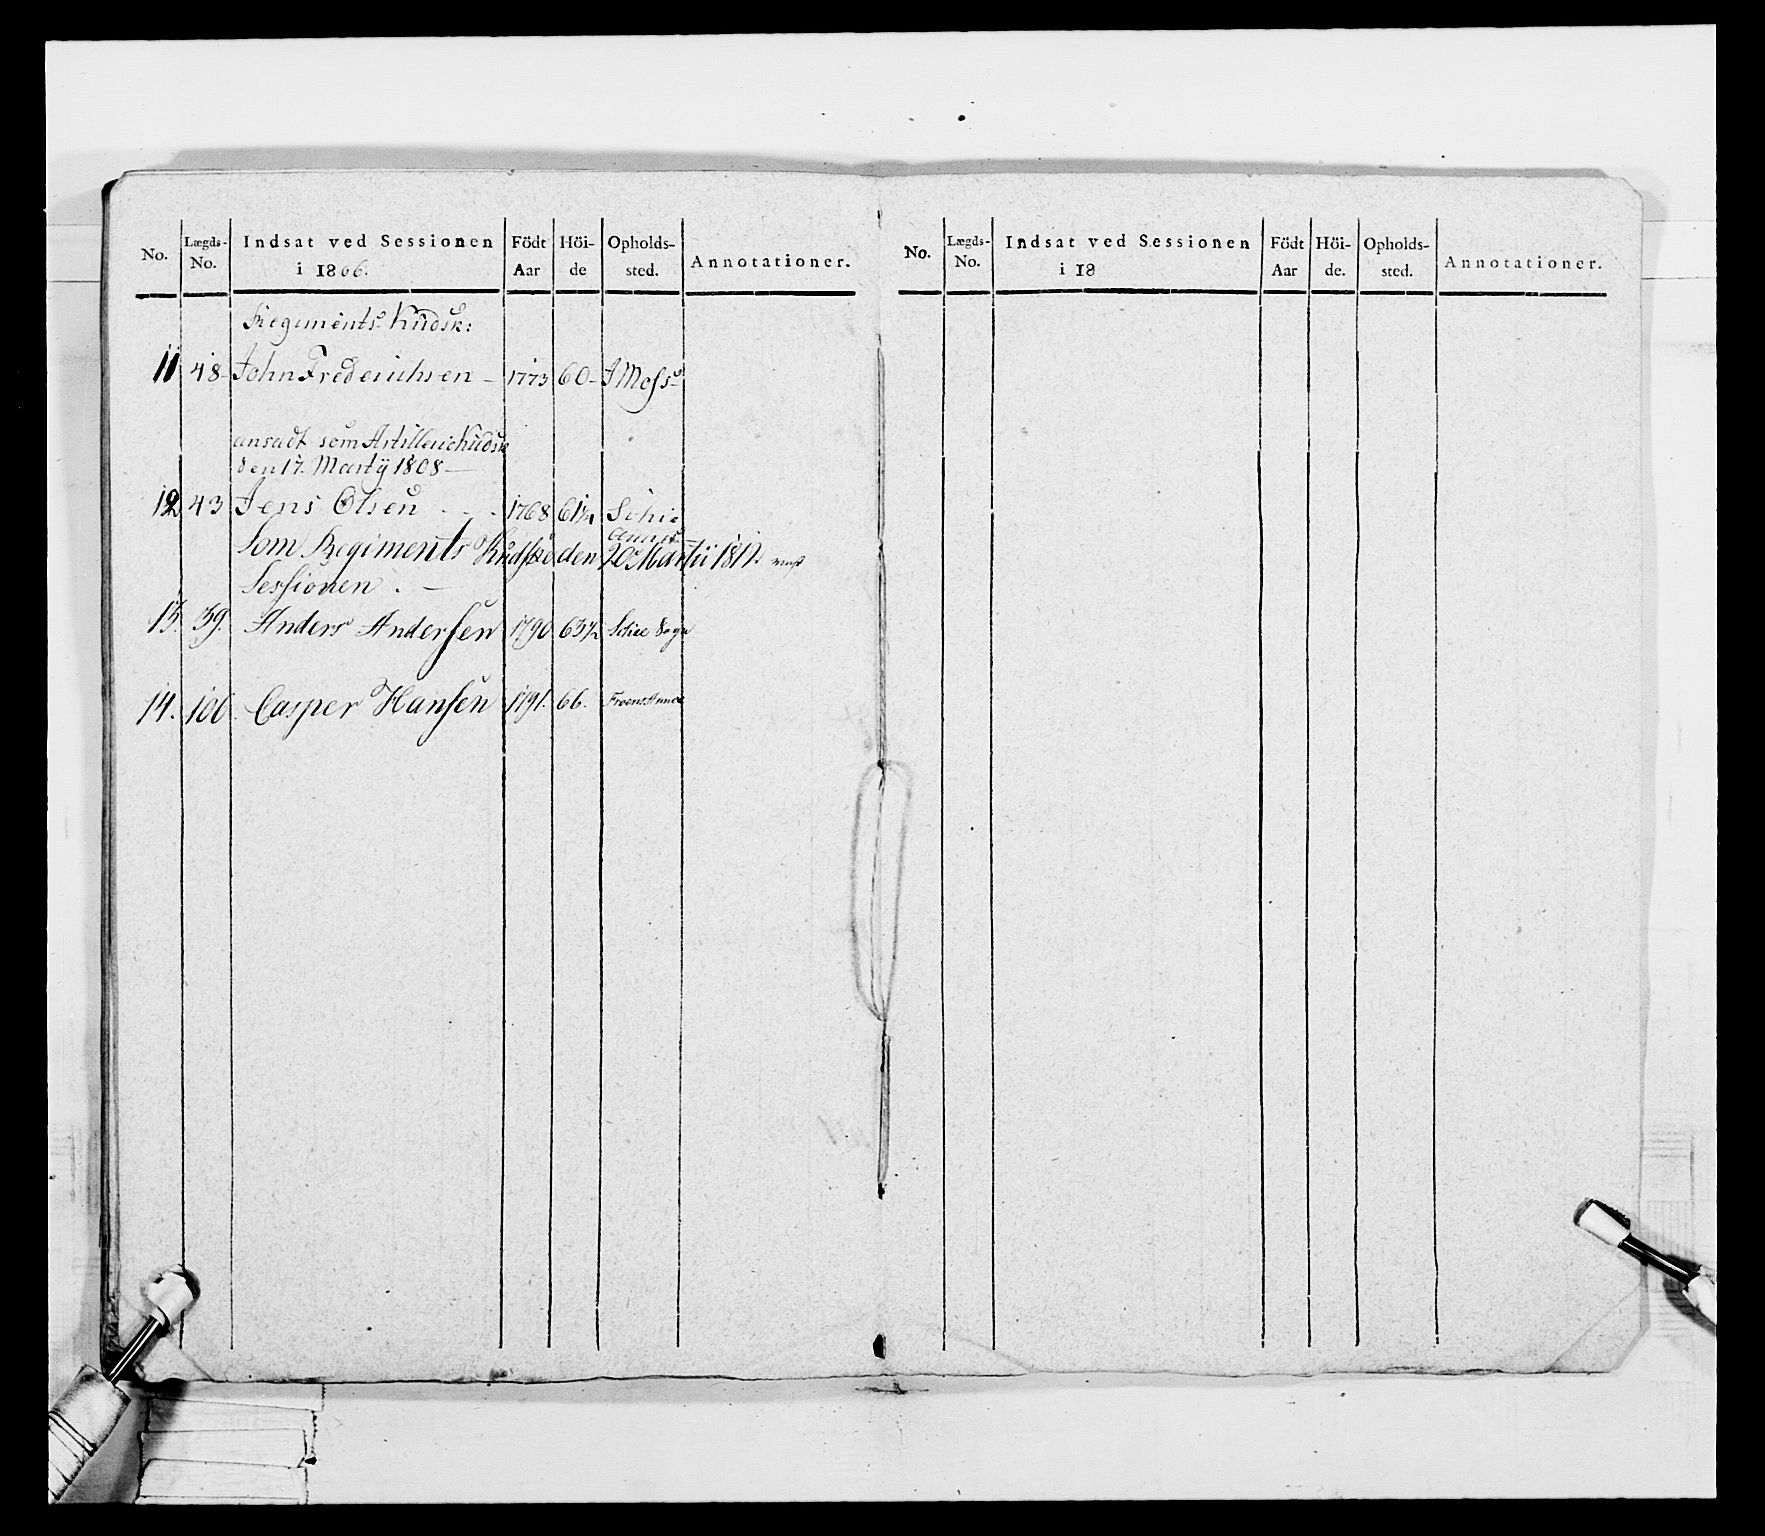 No. Lægds-No. Indsat ved Sessionen i 1806. Födt Aar Höi-de Opholds-sted. Annotationer.
Regiments Kudsk:
11 48 - John Frederichsen - 1773 60 - I Moss
ansadt som Artillerie Kudsk
den 17. Martÿ 1808 -
12 43 Jens Olsen 1768 61½ Schie
Annex
Som Regiments Kudske den 20 Martii 1812
Sessionen . -
13. 39. Anders Andersen 1790 63½ Schie Sogn
14. 100. Casper Hansen 1791. 66. Froens Annex
No. Lægds-No. Indsat ved Sessionen i 18 Födt Aar Höi-de. Opholds-sted. Annotationer.